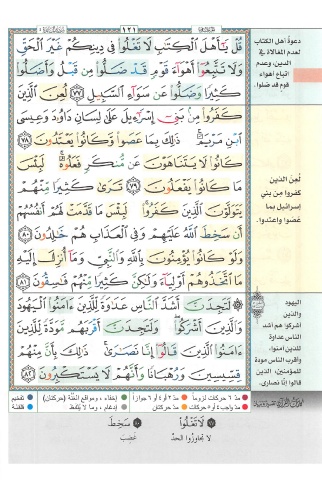 ١٢١
قُلْ يَٰٓأَهْلَ ٱلْكِتَٰبِ لَا تَغْلُوا۟ فِى دِينِكُمْ غَيْرَ ٱلْحَقِّ
وَلَا تَتَّبِعُوٓا۟ أَهْوَآءَ قَوْمٍ قَدْ ضَلُّوا۟ مِن قَبْلُ وَأَضَلُّوا۟
كَثِيرًا وَضَلُّوا۟ عَن سَوَآءِ ٱلسَّبِيلِ ٧٧ لُعِنَ ٱلَّذِينَ
كَفَرُوا۟ مِنۢ بَنِىٓ إِسْرَٰٓءِيلَ عَلَىٰ لِسَانِ دَاوُۥدَ وَعِيسَى
ٱبْنِ مَرْيَمَ ۚ ذَٰلِكَ بِمَا عَصَوا۟ وَّكَانُوا۟ يَعْتَدُونَ ٧٨
كَانُوا۟ لَا يَتَنَاهَوْنَ عَن مُّنكَرٍ فَعَلُوهُ ۚ لَبِئْسَ
مَا كَانُوا۟ يَفْعَلُونَ ٧٩ تَرَىٰ كَثِيرًا مِّنْهُمْ
يَتَوَلَّوْنَ ٱلَّذِينَ كَفَرُوا۟ ۚ لَبِئْسَ مَا قَدَّمَتْ لَهُمْ أَنفُسُهُمْ
أَن سَخِطَ ٱللَّهُ عَلَيْهِمْ وَفِى ٱلْعَذَابِ هُمْ خَٰلِدُونَ ٨٠
وَلَوْ كَانُوا۟ يُؤْمِنُونَ بِٱللَّهِ وَٱلنَّبِىِّ وَمَآ أُنزِلَ إِلَيْهِ
مَا ٱتَّخَذُوهُمْ أَوْلِيَآءَ وَلَٰكِنَّ كَثِيرًا مِّنْهُمْ فَٰسِقُونَ ٨١
لَتَجِدَنَّ أَشَدَّ ٱلنَّاسِ عَدَٰوَةً لِّلَّذِينَ ءَامَنُوا۟ ٱلْيَهُودَ
وَٱلَّذِينَ أَشْرَكُوا۟ ۖ وَلَتَجِدَنَّ أَقْرَبَهُم مَّوَدَّةً لِّلَّذِينَ
ءَامَنُوا۟ ٱلَّذِينَ قَالُوٓا۟ إِنَّا نَصَٰرَىٰ ۚ ذَٰلِكَ بِأَنَّ مِنْهُمْ
قِسِّيسِينَ وَرُهْبَانًا وَأَنَّهُمْ لَا يَسْتَكْبِرُونَ ٨٢
دعوة أهل الكتاب
لعدم المغالاة في
الدين، وعدم
اتباع أهواء
قوم قد ضلوا.
لُعِنَ الذين
كفروا من بني
إسرائيل بما
عَصَوا واعتدوا.
اليهود
والذين
أشركوا هم أشد
الناس عداوة
للذين آمنوا،
وأقرب الناس مودة
للمؤمنين، الذين
قالوا إنّا نصارى.
مدّ ٦ حركات لزوماً
مدّ ٢ أو ٤ أو ٦ جوازاً
إخفاء، ومواقع الغُنَّة (حركتان)
تفخيم
مدّ واجب ٤ أو ٥ حركات
مدّ حركتان
إدغام، وما لا يُلفَظ
قلقلة
لَا تَغْلُوا۟
لا تجاوزوا الحدّ
سَخِطَ
غضِبَ